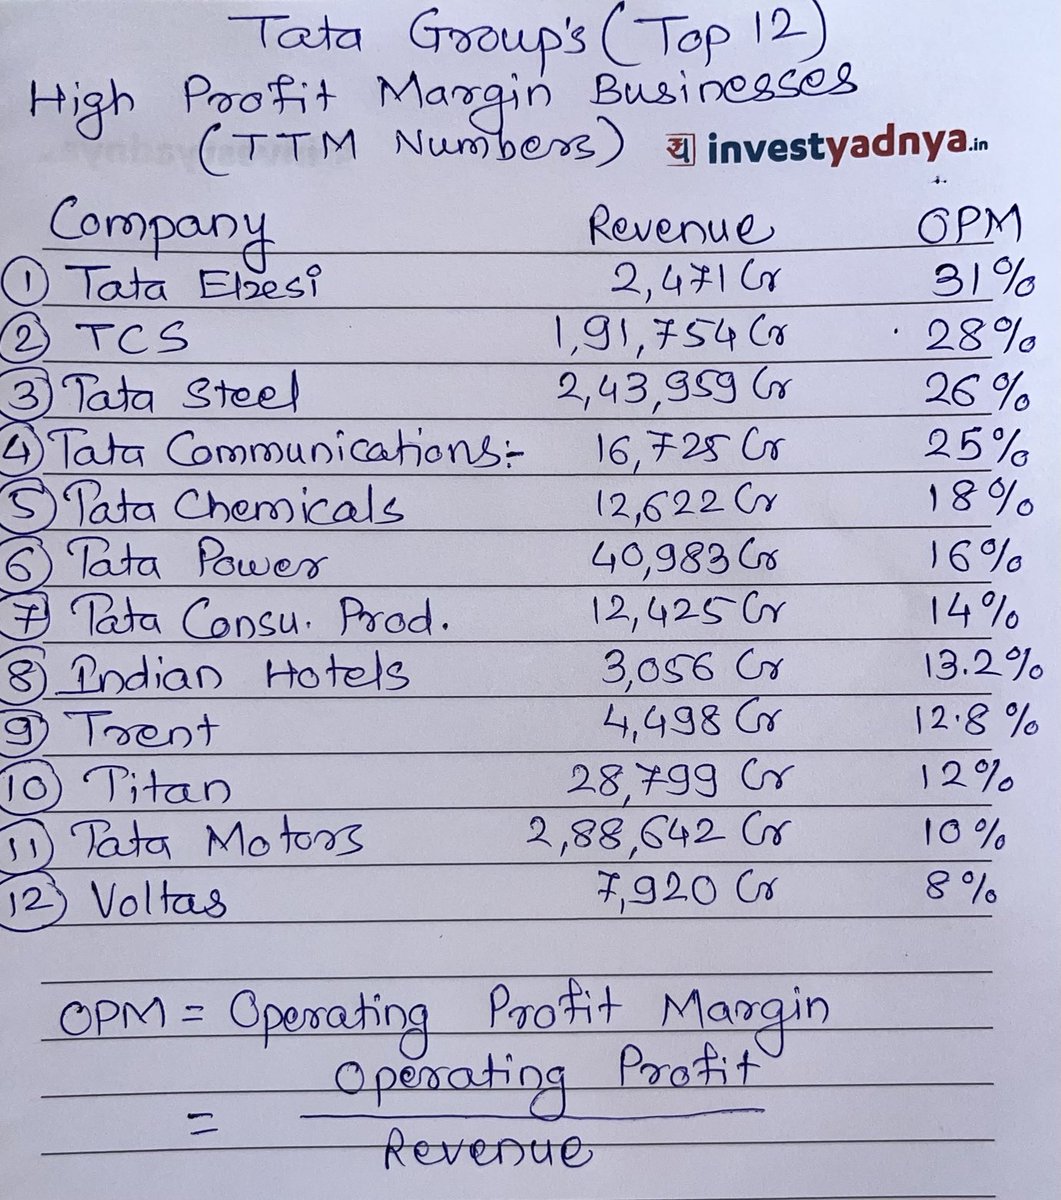 Tata Group's (Top 12)
High Profit Margin Businesses
(TTM Numbers) य investyadnya.in
Company Revenue OPM
1 Tata Elxesi 2,471 Cr 31%
2 TCS 1,91,754 Cr 28%
3 Tata Steel 2,43,959 Cr 26%
4 Tata Communications:- 16,725 Cr 25%
5 Tata Chemicals 12,622 Cr 18%
6 Tata Power 40,983 Cr 16%
7 Tata Consu. Prod. 12,425 Cr 14%
8 Indian Hotels 3,056 Cr 13.2%
9 Trent 4,498 Cr 12.8%
10 Titan 28,799 Cr 12%
11 Tata Motors 2,88,642 Cr 10%
12 Voltas 7,920 Cr 8%
OPM = Operating Profit Margin
Operating Profit
=
Revenue